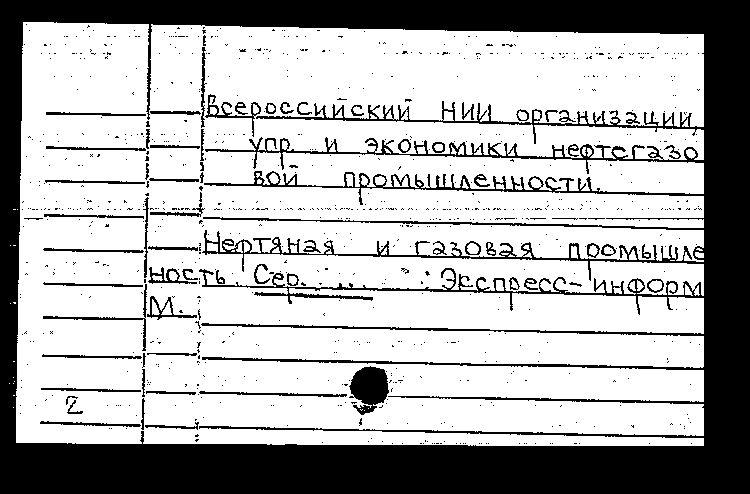 Всероссийский НИИ организации,
упр. и экономики нефтегазо
вой промышленности.
Нефтяная и газовая промышле
ность. Сер. ... : Экспресс-информ
М.
2